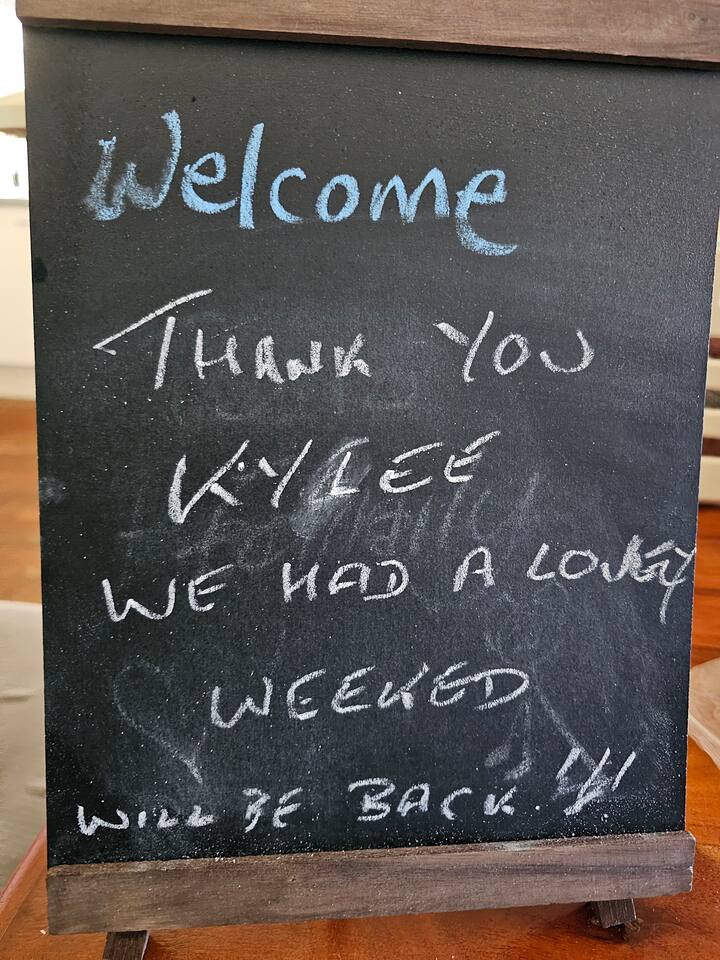 Welcome
THANK YOU
KYLEE
WE HAD A LOVELY
WEEKED
WILL BE BACK.!!!